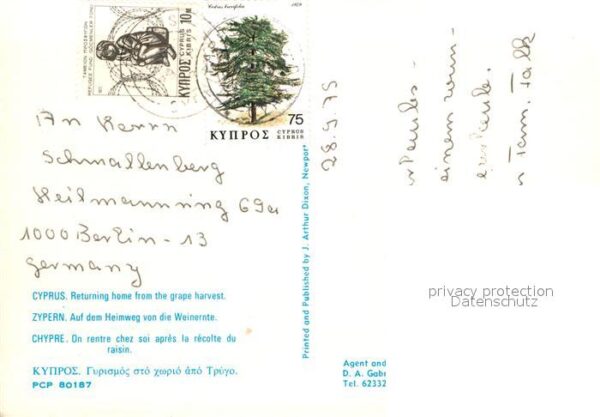 ΤΑΜΕΙΟΝ ΠΡΟΣΦΥΓΩΝ
REFUGEE FUND GÖÇMENLER FONU
ΚΥΠΡΟΣ CYPRUS KIBRIS 10M
Cedrus brevifolia 1979
75
ΚΥΠΡΟΣ CYPRUS KIBRIS
An Herrn
Schmallenberg
Heilmannring 69a
1000 Berlin - 13
Germany
CYPRUS. Returning home from the grape harvest.
ZYPERN. Auf dem Heimweg von die Weinernte.
CHYPRE. On rentre chez soi après la récolte du
raisin.
ΚΥΠΡΟΣ. Γυρισμός στό χωριό ἀπό Τρύγο.
PCP 80187
Printed and Published by J. Arthur Dixon, Newpor
einem
Fam.
privacy protection
Datenschutz
Agent and
D. A. Gabr
Tel. 62332